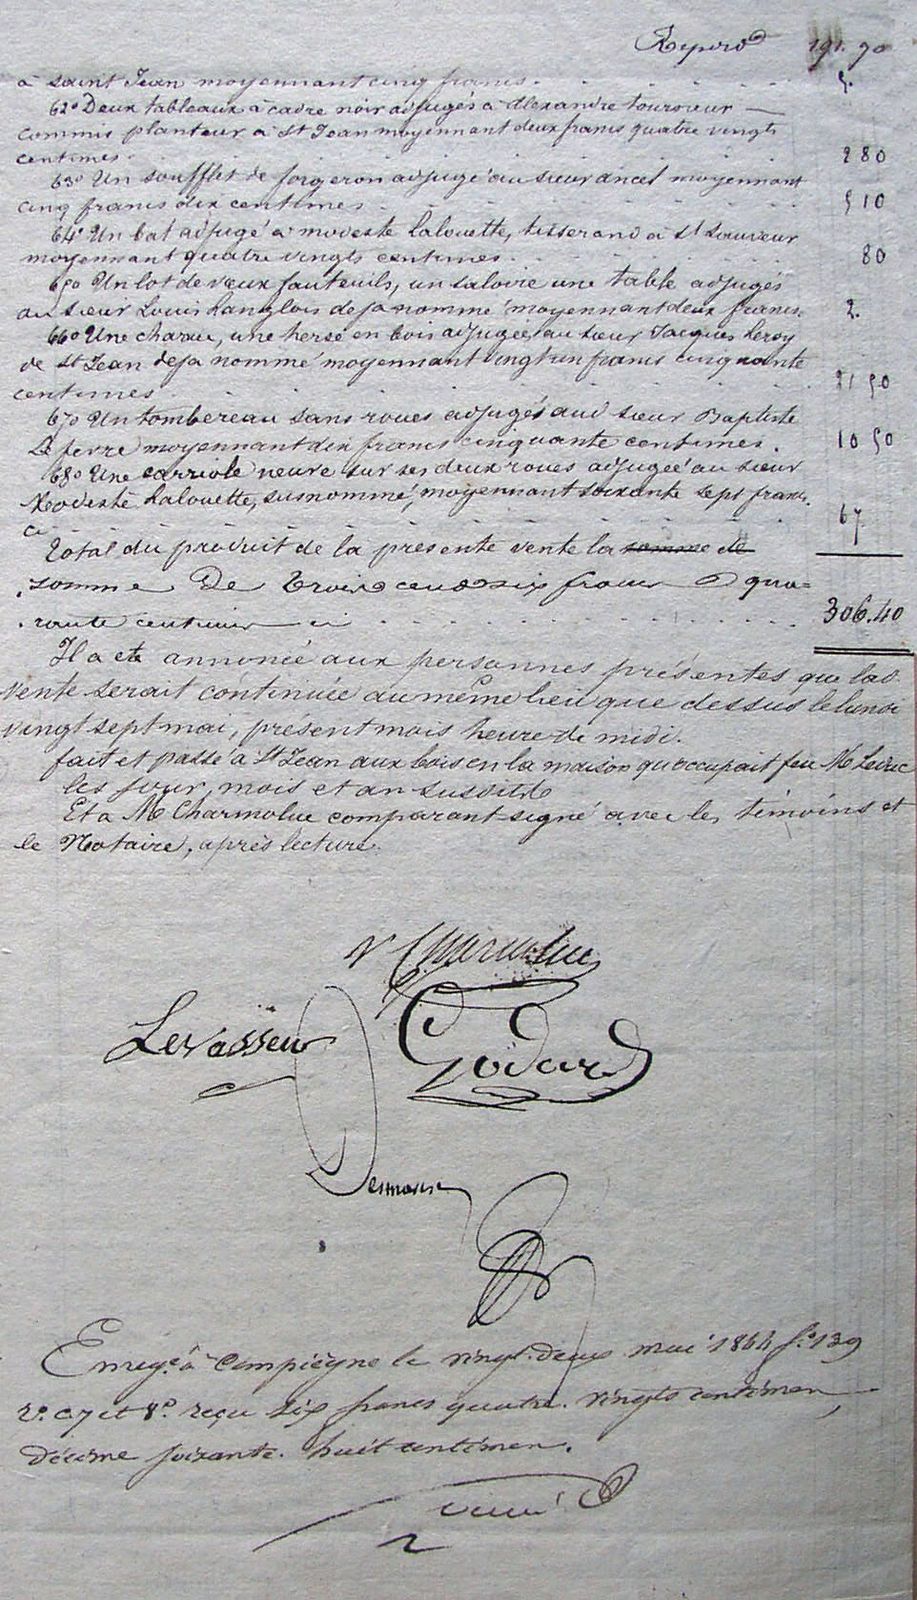 Report 191. 70
à saint Jean moyennant cinq francs. 5.
62° Deux tableaux à cadre noir adjugés à Alexandre toursieur
commis planteur à St Jean moyennant deux francs quatre vingts
centimes. 2 80
63° Un soufflet de forgeron adjugé au sieur ancel moyennant
cinq francs dix centimes 5 10
64° Un bât adjugé à modeste Lalouette, tisserand à St Sauveur
moyennant quatre vingts centimes. 80
65° Un lot de vieux fauteuils, un saloire une table adjugés
au sieur Louis Langlois deja nommé moyennant deux francs. 2.
66° Une charue, une herse en bois adjugée au sieur Jacques Leroy
de St Jean deja nommé moyennant vingt un francs cinquante
centimes 21 50
67° Un tombereau sans roues adjugés aud sieur Baptiste
Lefevre moyennant dix francs cinquante centimes. 10 50
68° Une carriole neuve sur ses deux roues adjugée au sieur
Modeste Lalouette, susnommé, moyennant soixante sept francs.
ci 67
Total du produit de la présente vente la somme de
somme De trois cent six francs qua=
rante centimes ci 306.40
Il a eté annoncé aux personnes présentes que lad.
vente serait continuée au même lieu que dessus le lundi
vingt sept mai, présent mois heure de midi.
fait et passé à St Jean aux bois en la maison qu'occupait feu Me Leduc
les jour, mois et an susdits
Et a Me Charmolue comparant signé avec les témoins et
le Notaire, après lecture.
V Charmolue
Levasseur
Godard
Enreg.é à Compiègne le vingt deux mai 1864 f.° 139
r.° c 7 et 8.° reçu six francs quatre. vingts centimes
décime soixante. huit centimes.